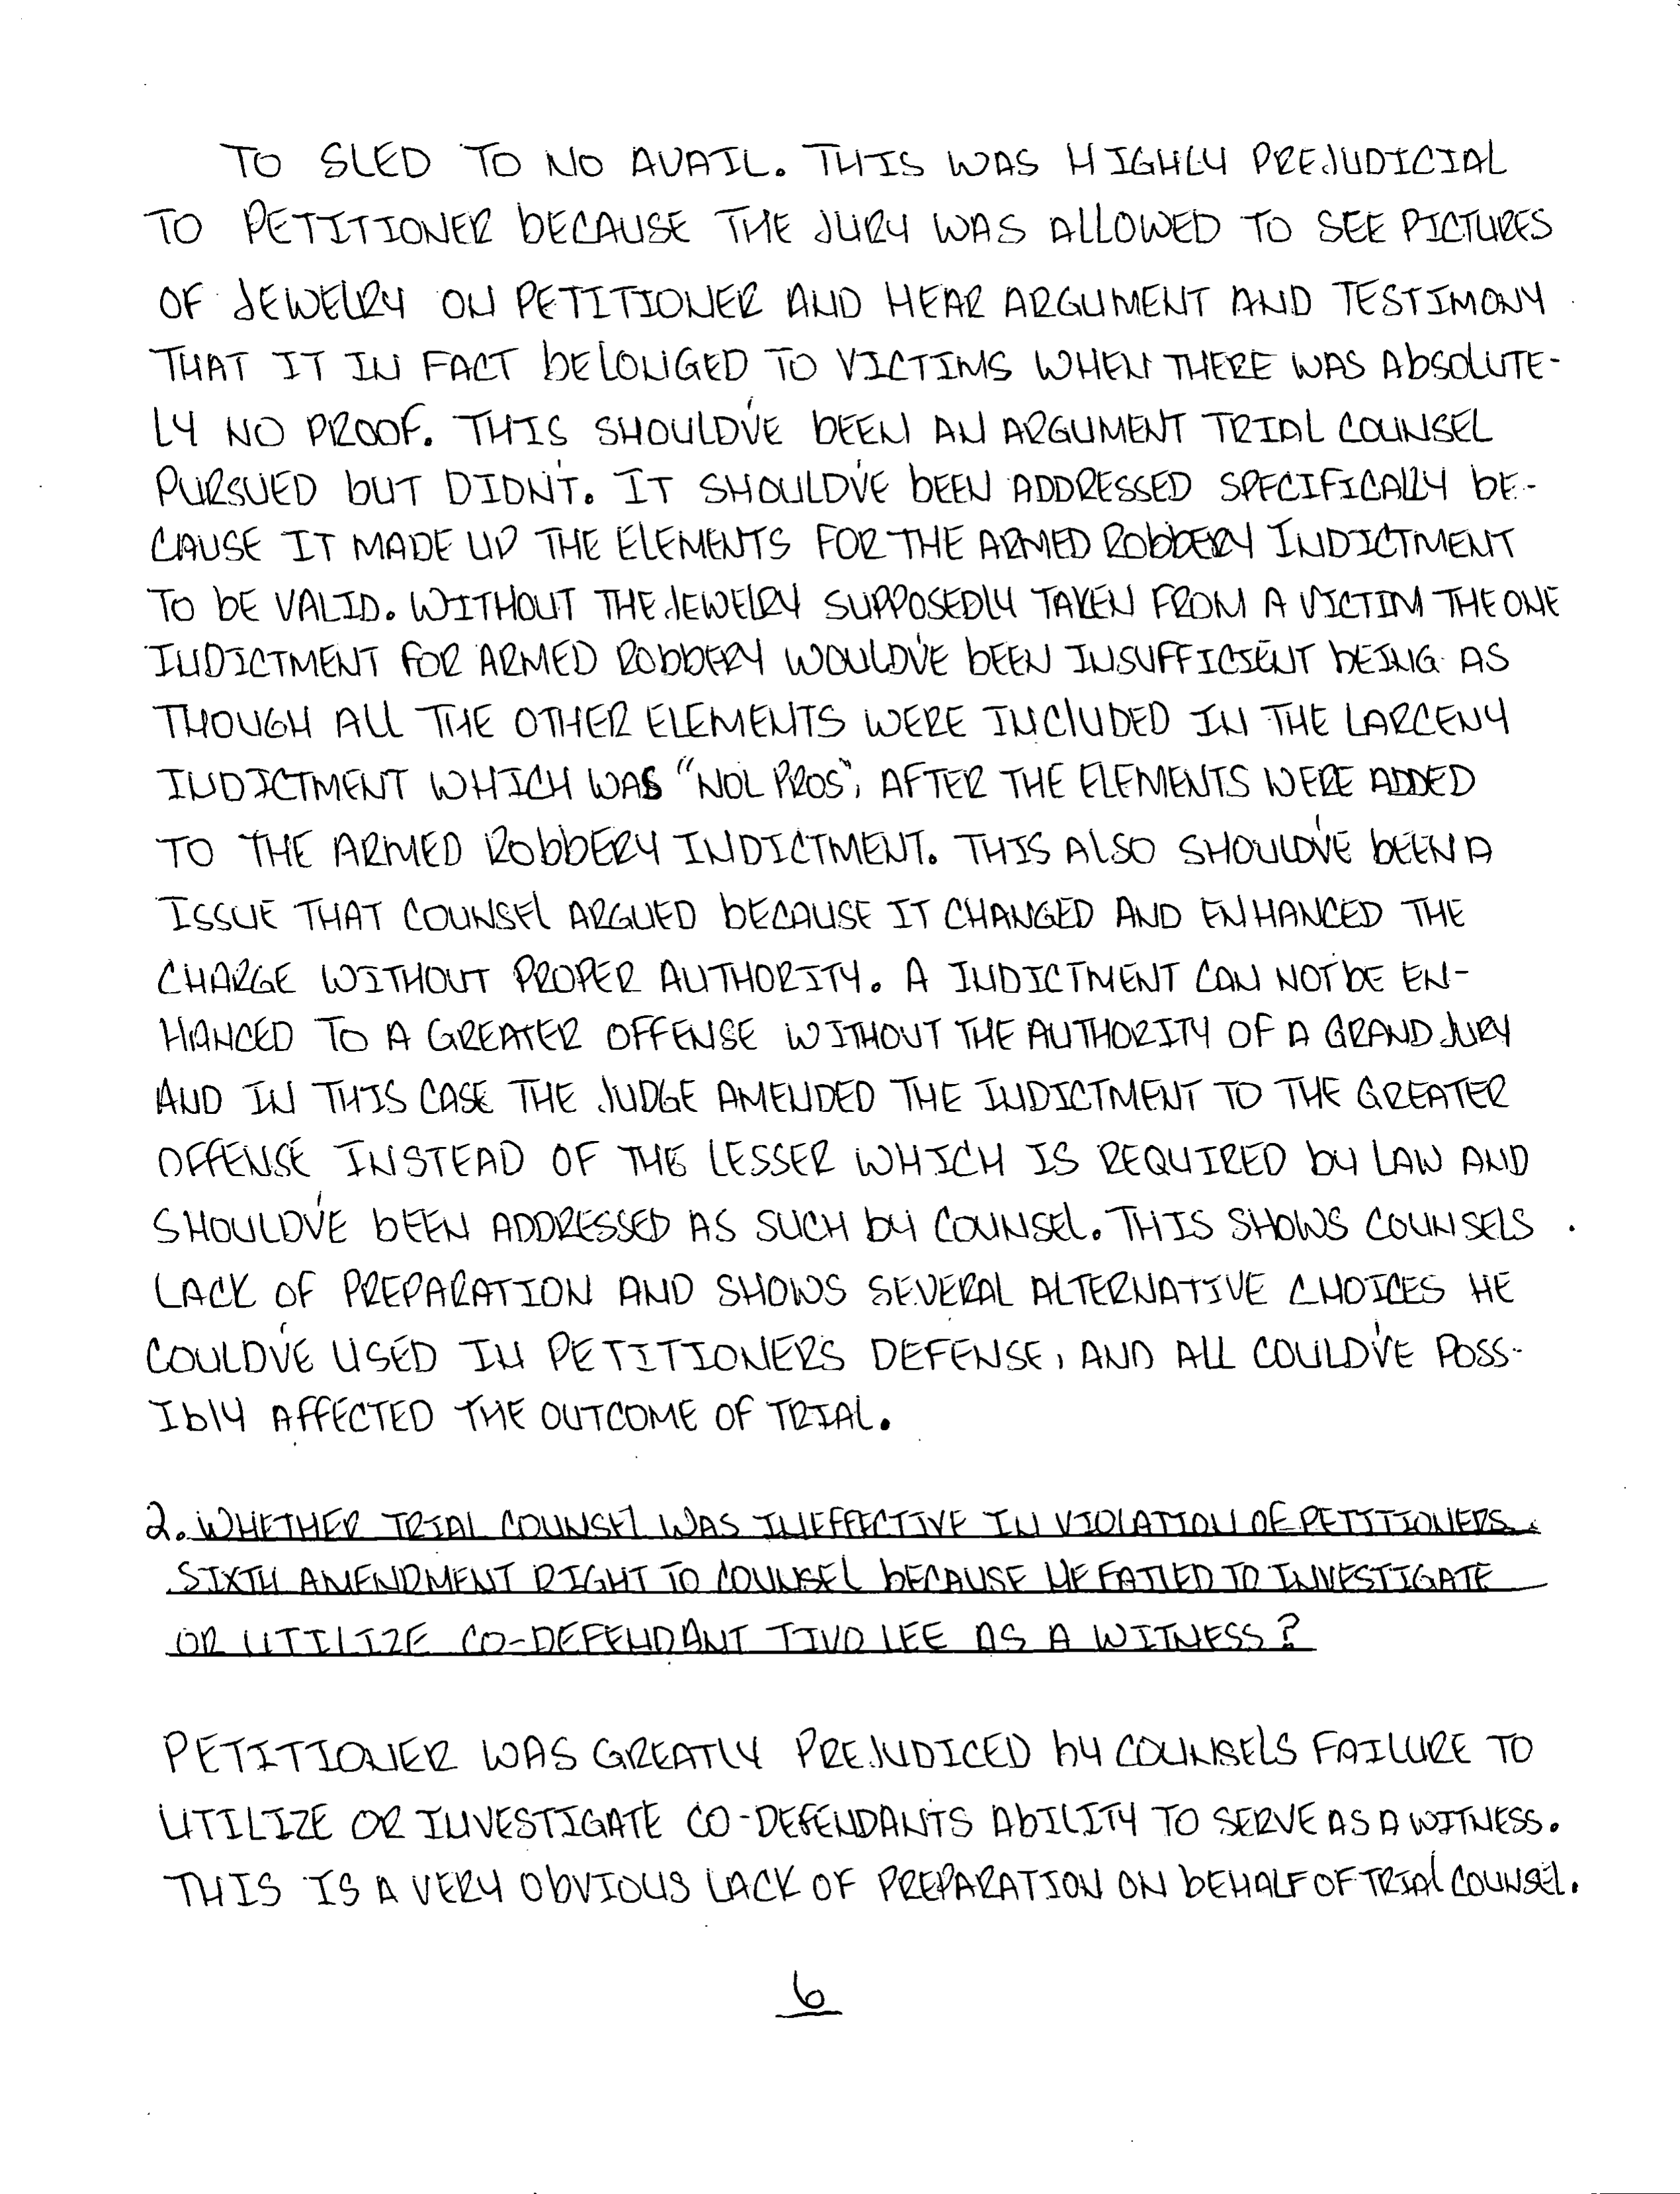 TO SLED TO NO AVAIL. THIS WAS HIGHLY PREJUDICIAL
TO PETITIONER BECAUSE THE JURY WAS ALLOWED TO SEE PICTURES
OF JEWELRY ON PETITIONER AND HEAR ARGUMENT AND TESTIMONY
THAT IT IN FACT BELONGED TO VICTIMS WHEN THERE WAS ABSOLUTE-
LY NO PROOF. THIS SHOULD'VE BEEN AN ARGUMENT TRIAL COUNSEL
PURSUED BUT DIDN'T. IT SHOULD'VE BEEN ADDRESSED SPECIFICALLY BE-
CAUSE IT MADE UP THE ELEMENTS FOR THE ARMED ROBBERY INDICTMENT
TO BE VALID. WITHOUT THE JEWELRY SUPPOSEDLY TAKEN FROM A VICTIM THE ONE
INDICTMENT FOR ARMED ROBBERY WOULD'VE BEEN INSUFFICIENT BEING AS
THOUGH ALL THE OTHER ELEMENTS WERE INCLUDED IN THE LARCENY
INDICTMENT WHICH WAS "NOL PROS", AFTER THE ELEMENTS WERE ADDED
TO THE ARMED ROBBERY INDICTMENT. THIS ALSO SHOULD'VE BEEN A
ISSUE THAT COUNSEL ARGUED BECAUSE IT CHANGED AND ENHANCED THE
CHARGE WITHOUT PROPER AUTHORITY. A INDICTMENT CAN NOT BE EN-
HANCED TO A GREATER OFFENSE WITHOUT THE AUTHORITY OF A GRAND JURY
AND IN THIS CASE THE JUDGE AMENDED THE INDICTMENT TO THE GREATER
OFFENSE INSTEAD OF THE LESSER WHICH IS REQUIRED BY LAW AND
SHOULD'VE BEEN ADDRESSED AS SUCH BY COUNSEL. THIS SHOWS COUNSELS
LACK OF PREPARATION AND SHOWS SEVERAL ALTERNATIVE CHOICES HE
COULD'VE USED IN PETITIONERS DEFENSE, AND ALL COULD'VE POSS-
IBLY AFFECTED THE OUTCOME OF TRIAL.
2. WHETHER TRIAL COUNSEL WAS INEFFECTIVE IN VIOLATION OF PETITIONERS
SIXTH AMENDMENT RIGHT TO COUNSEL BECAUSE HE FAILED TO INVESTIGATE
OR UTILIZE CO-DEFENDANT TIVO LEE AS A WITNESS?
PETITIONER WAS GREATLY PREJUDICED BY COUNSELS FAILURE TO
UTILIZE OR INVESTIGATE CO-DEFENDANTS ABILITY TO SERVE AS A WITNESS.
THIS IS A VERY OBVIOUS LACK OF PREPARATION ON BEHALF OF TRIAL COUNSEL.
6